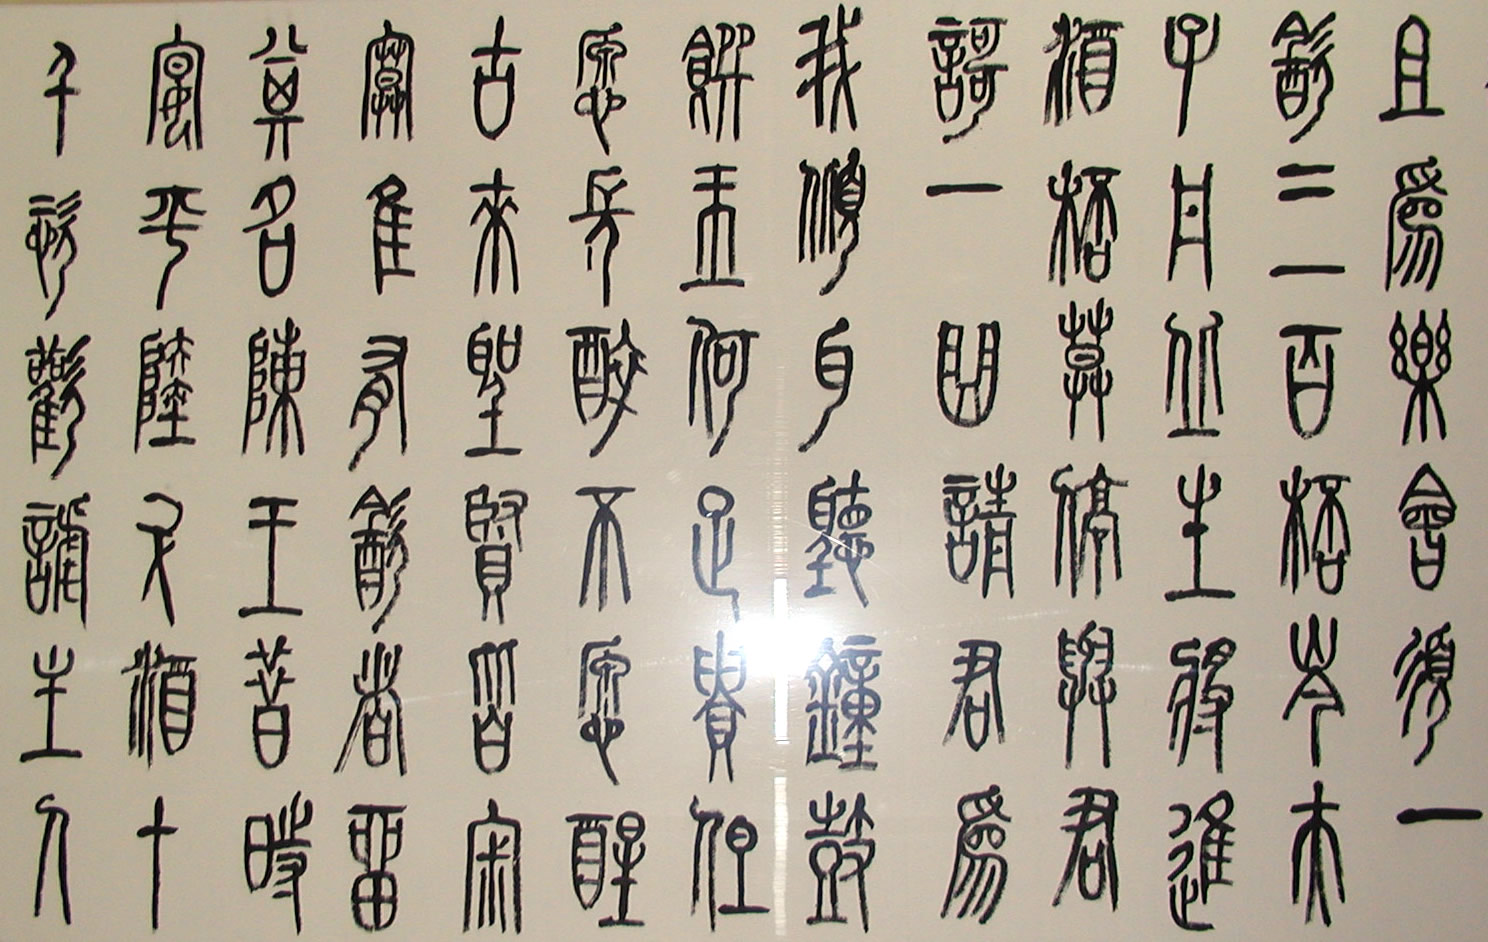 且為樂會須一
飲三百杯岑夫
子丹丘生將進
酒杯莫停與君
謌一曲請君為
我傾耳聽鐘鼓
饌玉何足貴但
愿長醉不愿醒
古來聖賢皆寂
寞隹有飲者留
其名陳王昔時
宴平陸斗酒十
千恣歡謔主人